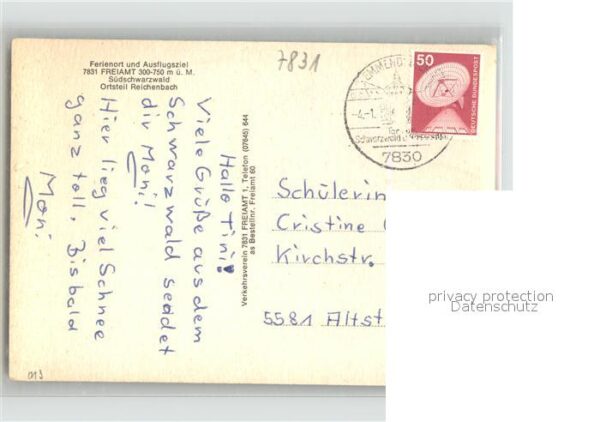 Ferienort und Ausflugsziel
7831 FREIAMT 300-750 m ü. M.
Südschwarzwald
Ortsteil Reichenbach
7831
50
DEUTSCHE BUNDESPOST
-4.-1.
7830
Hallo Tini!
Viele Grüße aus dem
Schwarzwald seədet
dir Moni!
Hier lieg viel Schnee
ganz toll. Bisbald
Moni
Verkehrsverein 7831 FREIAMT 1, Telefon (07645) 644
as Bestellnr. Freiamt 60
Schülerin
Cristine
Kirchstr.
5581 Altst
privacy protection
Datenschutz